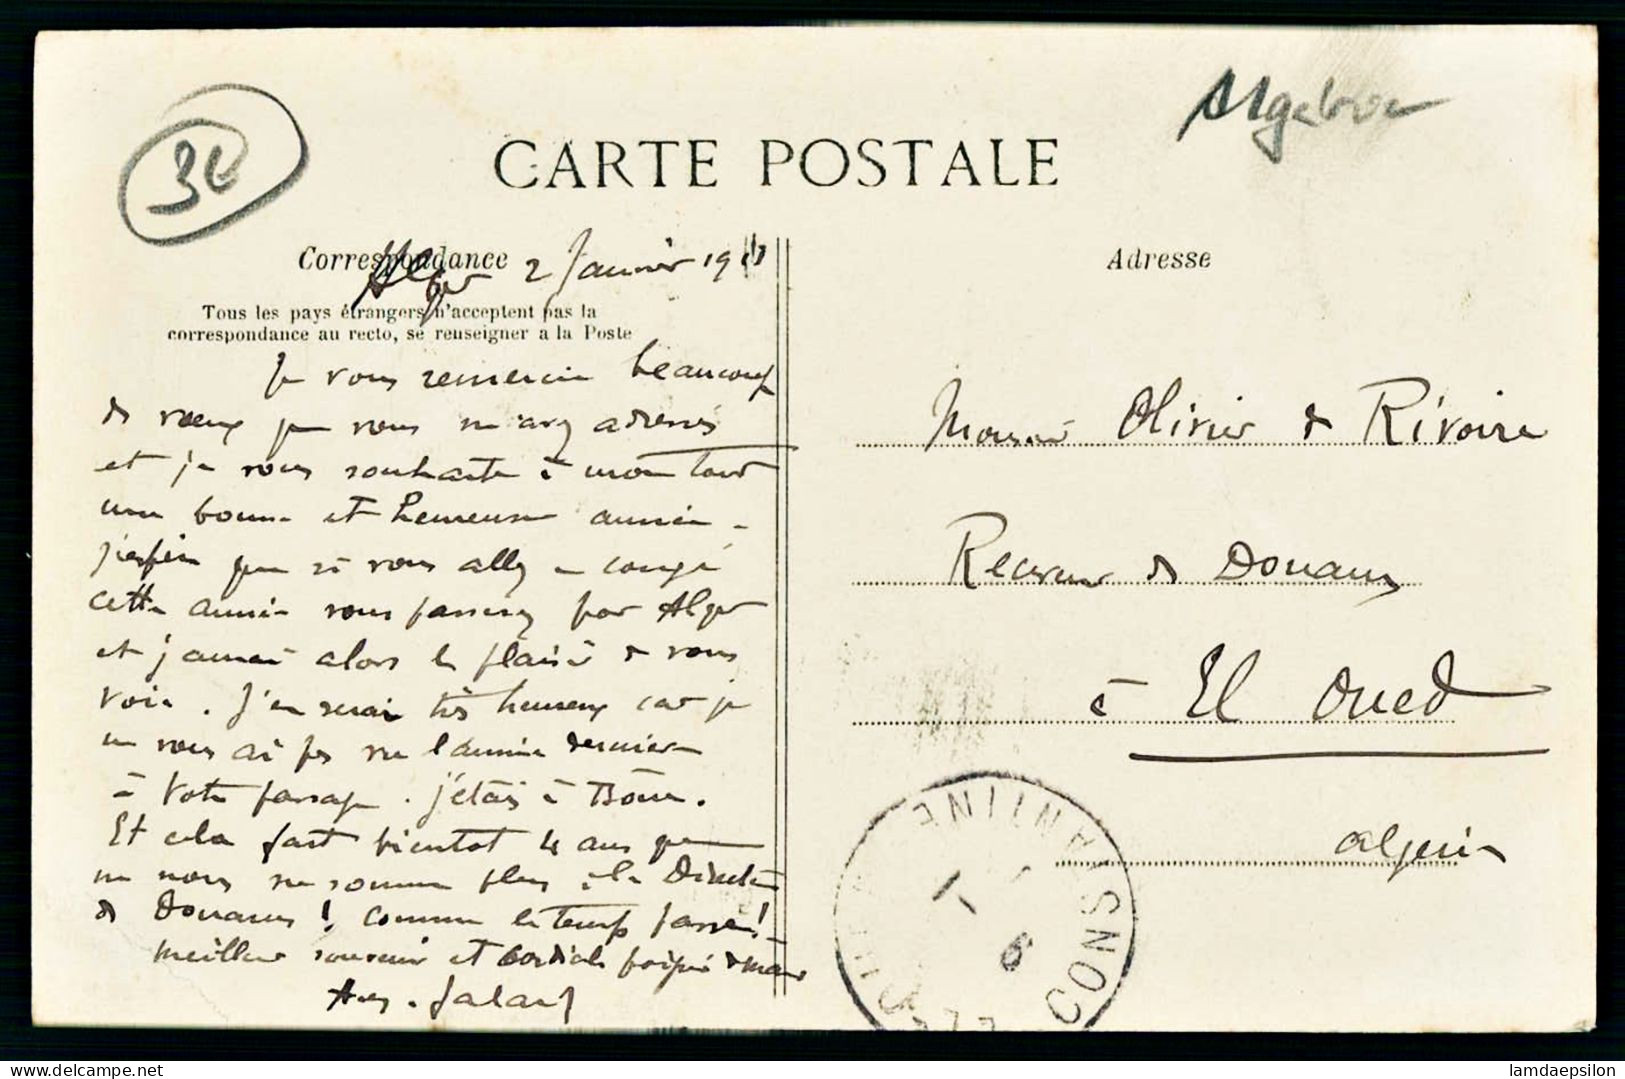 3€
CARTE POSTALE
Correspondance
Alger 2 Janvier 1911
Tous les pays étrangers n'acceptent pas la
correspondance au recto, se renseigner a la Poste
Je vous remercie beaucoup
des vœux que vous m'avez adressés
et je vous souhaite à mon tour
une bonne et heureuse année -
j'espère que si vous allez en congé
cette année vous passerez par Alger
et j'aurai alors le plaisir de vous
voir. J'en serai très heureux car je
ne vous ai pas vu l'année dernière
à votre passage. J'étais à Bône.
Et cela fait bientôt 4 ans que
nous ne sommes plus à la Direction
des Douanes ! comme le temps passe !
Meilleur souvenir et cordiale poignée de main
Adresse
Monsieur Olivier de Rivoire
Receveur des Douanes
à El Oued
Algérie
EL-OUED CONSTANTINE